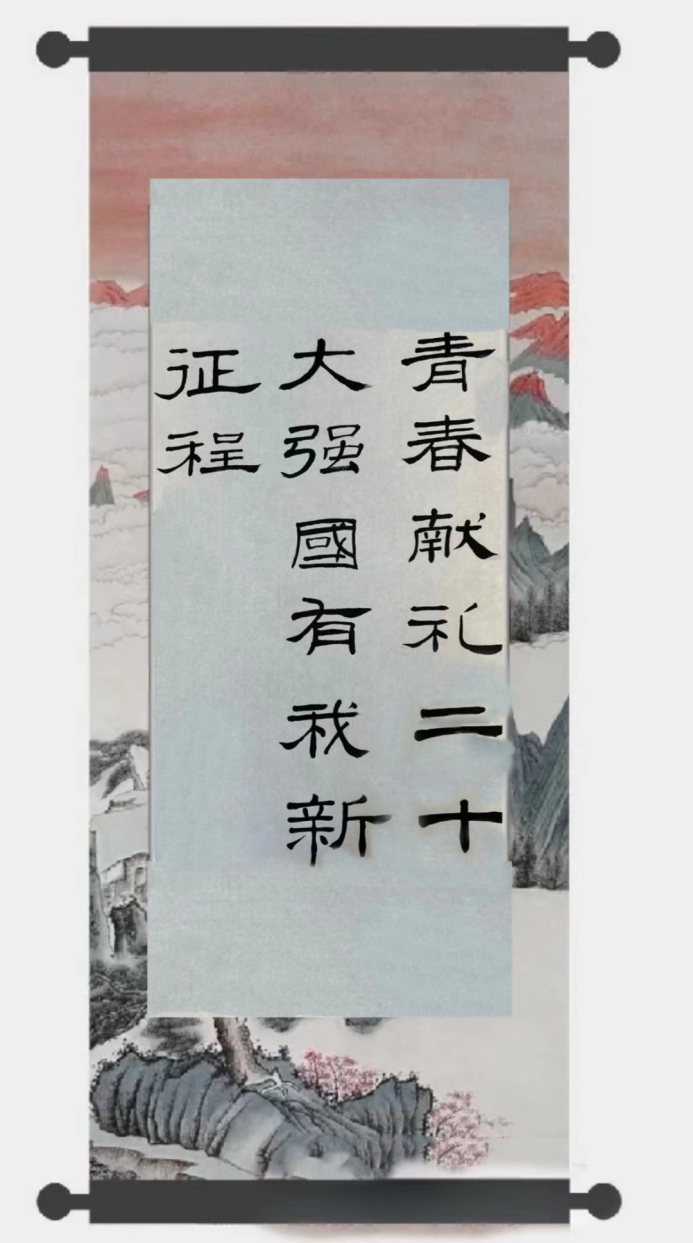 青春献礼二十
大强國有我新
征程